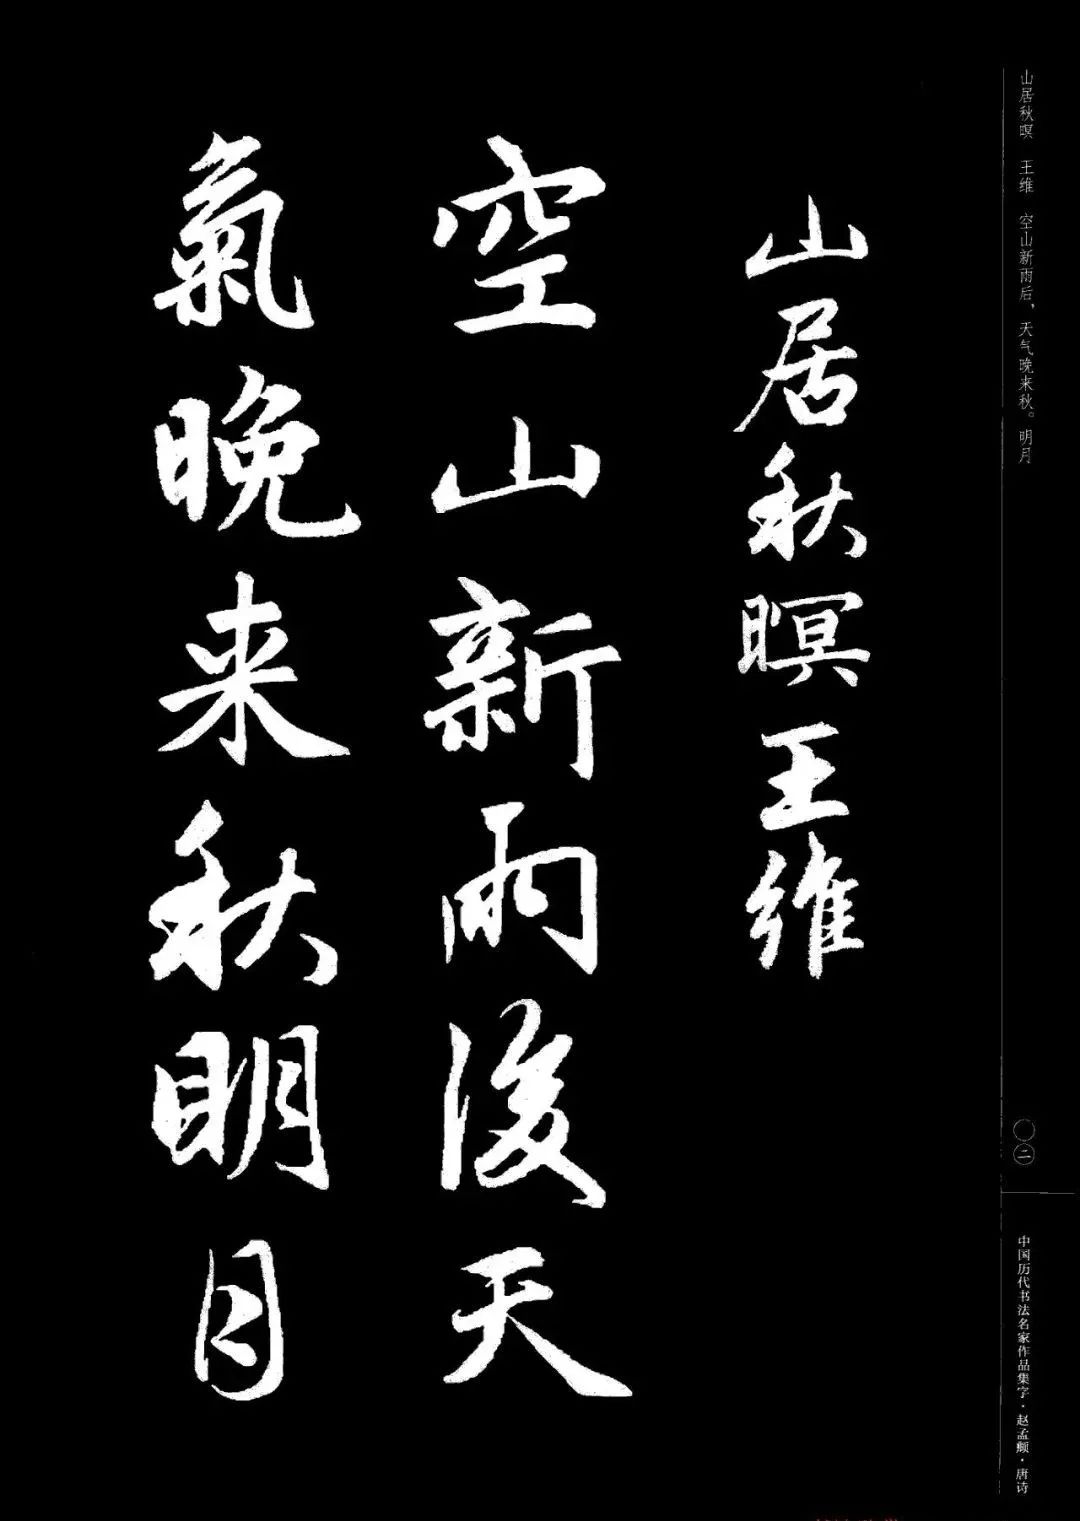 山居秋暝 王维 空山新雨后，天气晚来秋。明月
山居秋暝王維
空山新雨後天
氣晚来秋明月
〇二
中国历代书法名家作品集字·赵孟頫·唐诗